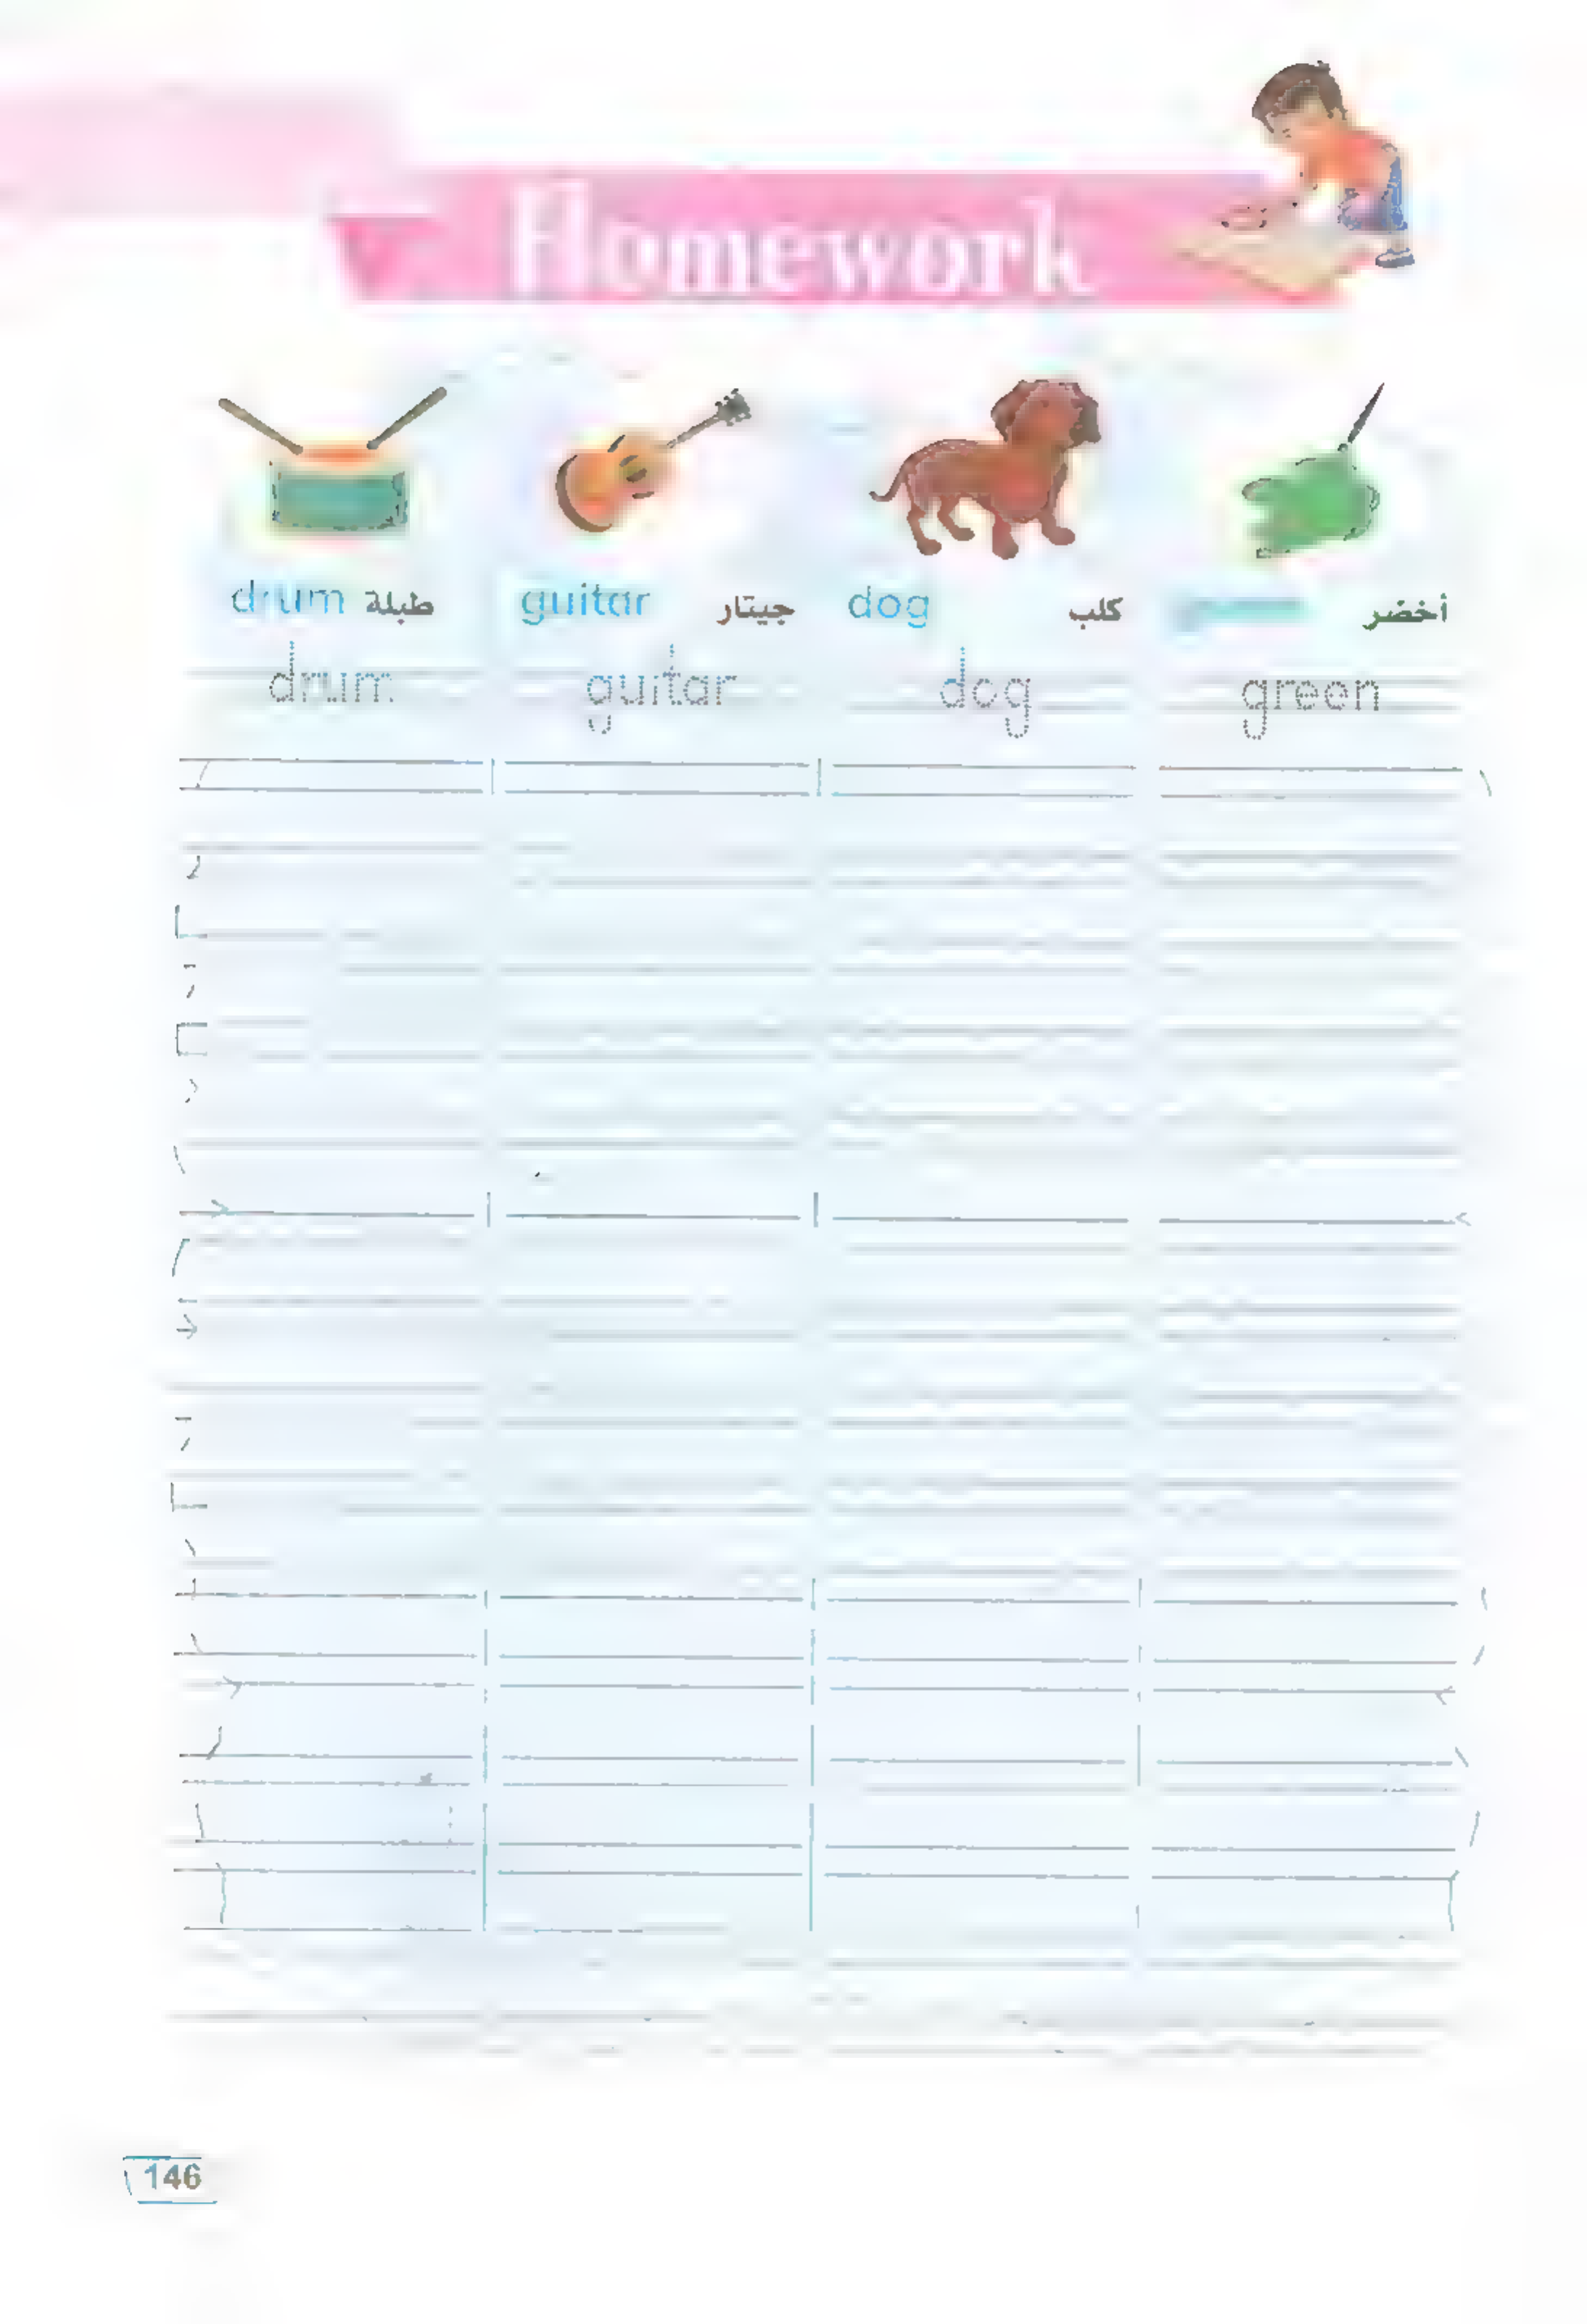 Homework
drum طبلة guitar جيتار dog كلب أخضر
drum guitar dog green
146